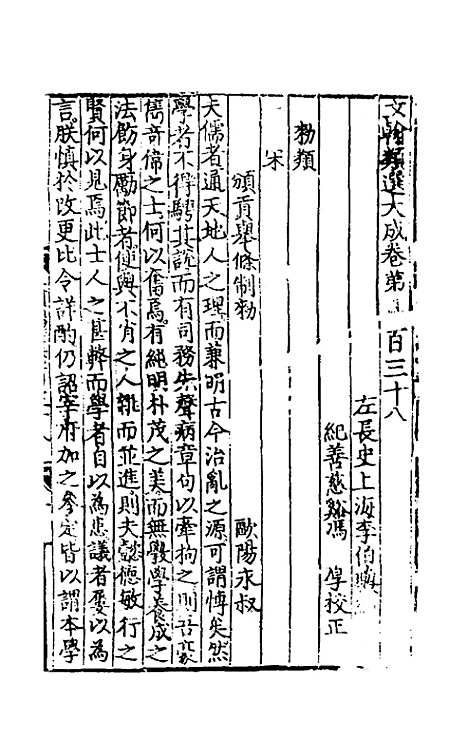 文翰類選大成卷第一百三十八
左長史上海李伯璵
紀善慈谿馮 厚校正
勑類
宋
頒貢舉條制勑 歐陽永叔
夫儒者通天地人之理而兼明古今治亂之源可謂博矣然
學者不得騁其説而有司務先聲病章句以牽拘之則吾豪
儁竒偉之士何以奮焉有純明朴茂之美而無斆學養成之
法飭身勵節者使與不肖之人雜而並進則夫懿德敏行之
賢何以見焉此士人之甚弊而學者自以為患議者屢以為
言朕慎於改更比令詳酌仍詔宰府加之參定皆以謂本學